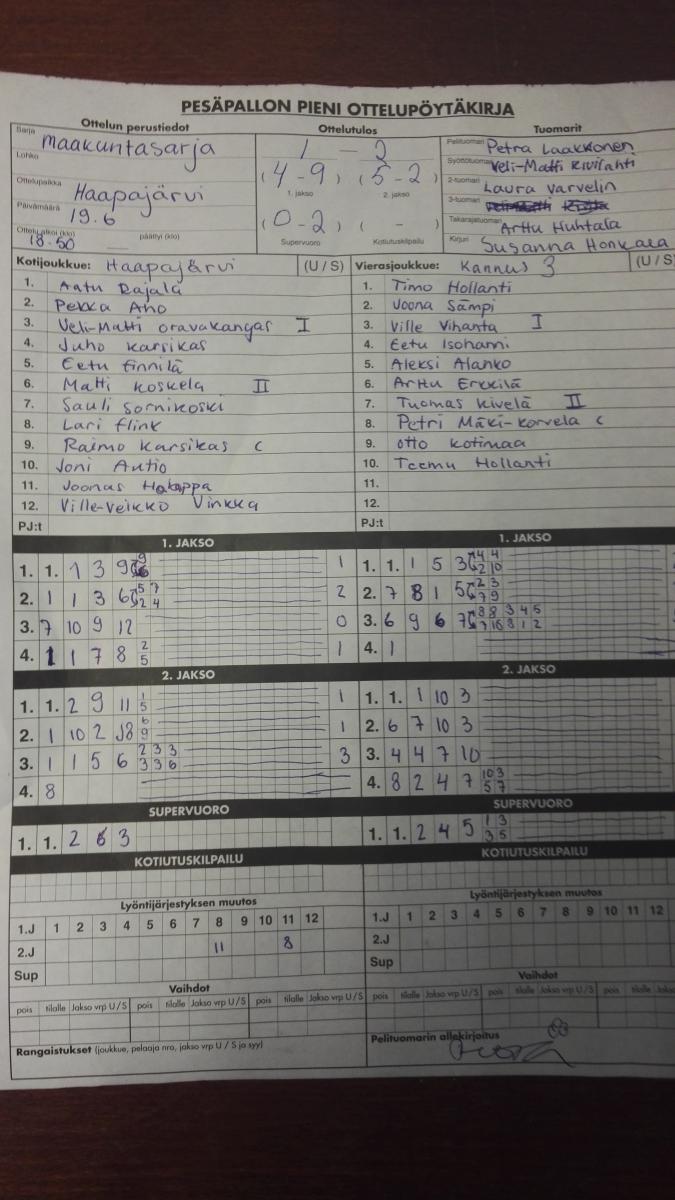 PESÄPALLON PIENI OTTELUPÖYTÄKIRJA
Ottelun perustiedot
Sarja
maakuntasarja
Lohko
Ottelupaikka
Haapajärvi
Päivämäärä
19.6
Ottelu alkoi (klo)
18.50
päättyi (klo)
Ottelutulos
1 - 2
(4 - 9) (5 - 2)
1. jakso 2. jakso
(0 - 2) ( - )
Supervuoro Kotiutuskilpailu
Tuomarit
Pelituomari Petra Laakkonen
Syöttötuomari Veli-Matti Kivilahti
2-tuomari Laura Varvelin
3-tuomari
Takarajatuomari Arttu Huhtala
Kirjuri Susanna Honkala
Kotijoukkue: Haapajärvi (U / S)
1. Aatu Rajala
2. Pekka Aho
3. Veli-Matti Oravakangas I
4. Juho Karsikas
5. Eetu Finnilä
6. Matti Koskela II
7. Sauli Sornikoski
8. Lari Flink
9. Raimo Karsikas C
10. Joni Autio
11. Joonas Haapa
12. Ville-Veikko Vinkka
PJ:t
Vierasjoukkue: Kannus 3 (U / S)
1. Timo Hollanti
2. Joona Sämpi
3. Ville Vihanta I
4. Eetu Isohanni
5. Aleksi Alanko
6. Arttu Erkkilä
7. Tuomas Kivelä II
8. Petri Mäki-Korvela C
9. Otto Kotimaa
10. Teemu Hollanti
11.
12.
PJ:t
1. JAKSO
1. 1. 1 3 9 1
2. 1 1 3 6 5 7 2 4 2
3. 7 10 9 12 0
4. 1 1 7 8 2 5 1
2. JAKSO
1. 1. 2 9 11 1 5 1
2. 1 10 2 8 6 9 1
3. 1 1 5 6 2 3 3 3 3 6 3
4. 8
SUPERVUORO
1. 1. 2 6 3
KOTIUTUSKILPAILU
1. JAKSO
1. 1. 1 5 3 4 4 2 10
2. 7 8 1 5 2 3 7 9
3. 6 9 6 7 8 8 3 4 5 7 10 8 1 2
4. 1
2. JAKSO
1. 1. 1 10 3
2. 6 7 10 3
3. 4 4 7 10
4. 8 2 4 7 10 3 5 7
SUPERVUORO
1. 1. 2 4 5 1 3 3 5
KOTIUTUSKILPAILU
Lyöntijärjestyksen muutos
1.J 1 2 3 4 5 6 7 8 9 10 11 12
2.J 11 8
Sup
Vaihdot
pois tilalle Jakso vrp U / S pois tilalle Jakso vrp U / S pois tilalle Jakso vrp U / S
Rangaistukset (joukkue, pelaaja nro, jakso vrp U / S ja syy)
Lyöntijärjestyksen muutos
1.J 1 2 3 4 5 6 7 8 9 10 11 12
2.J
Sup
Vaihdot
pois tilalle Jakso vrp U / S pois tilalle Jakso vrp U / S pois tilalle
Pelituomarin allekirjoitus